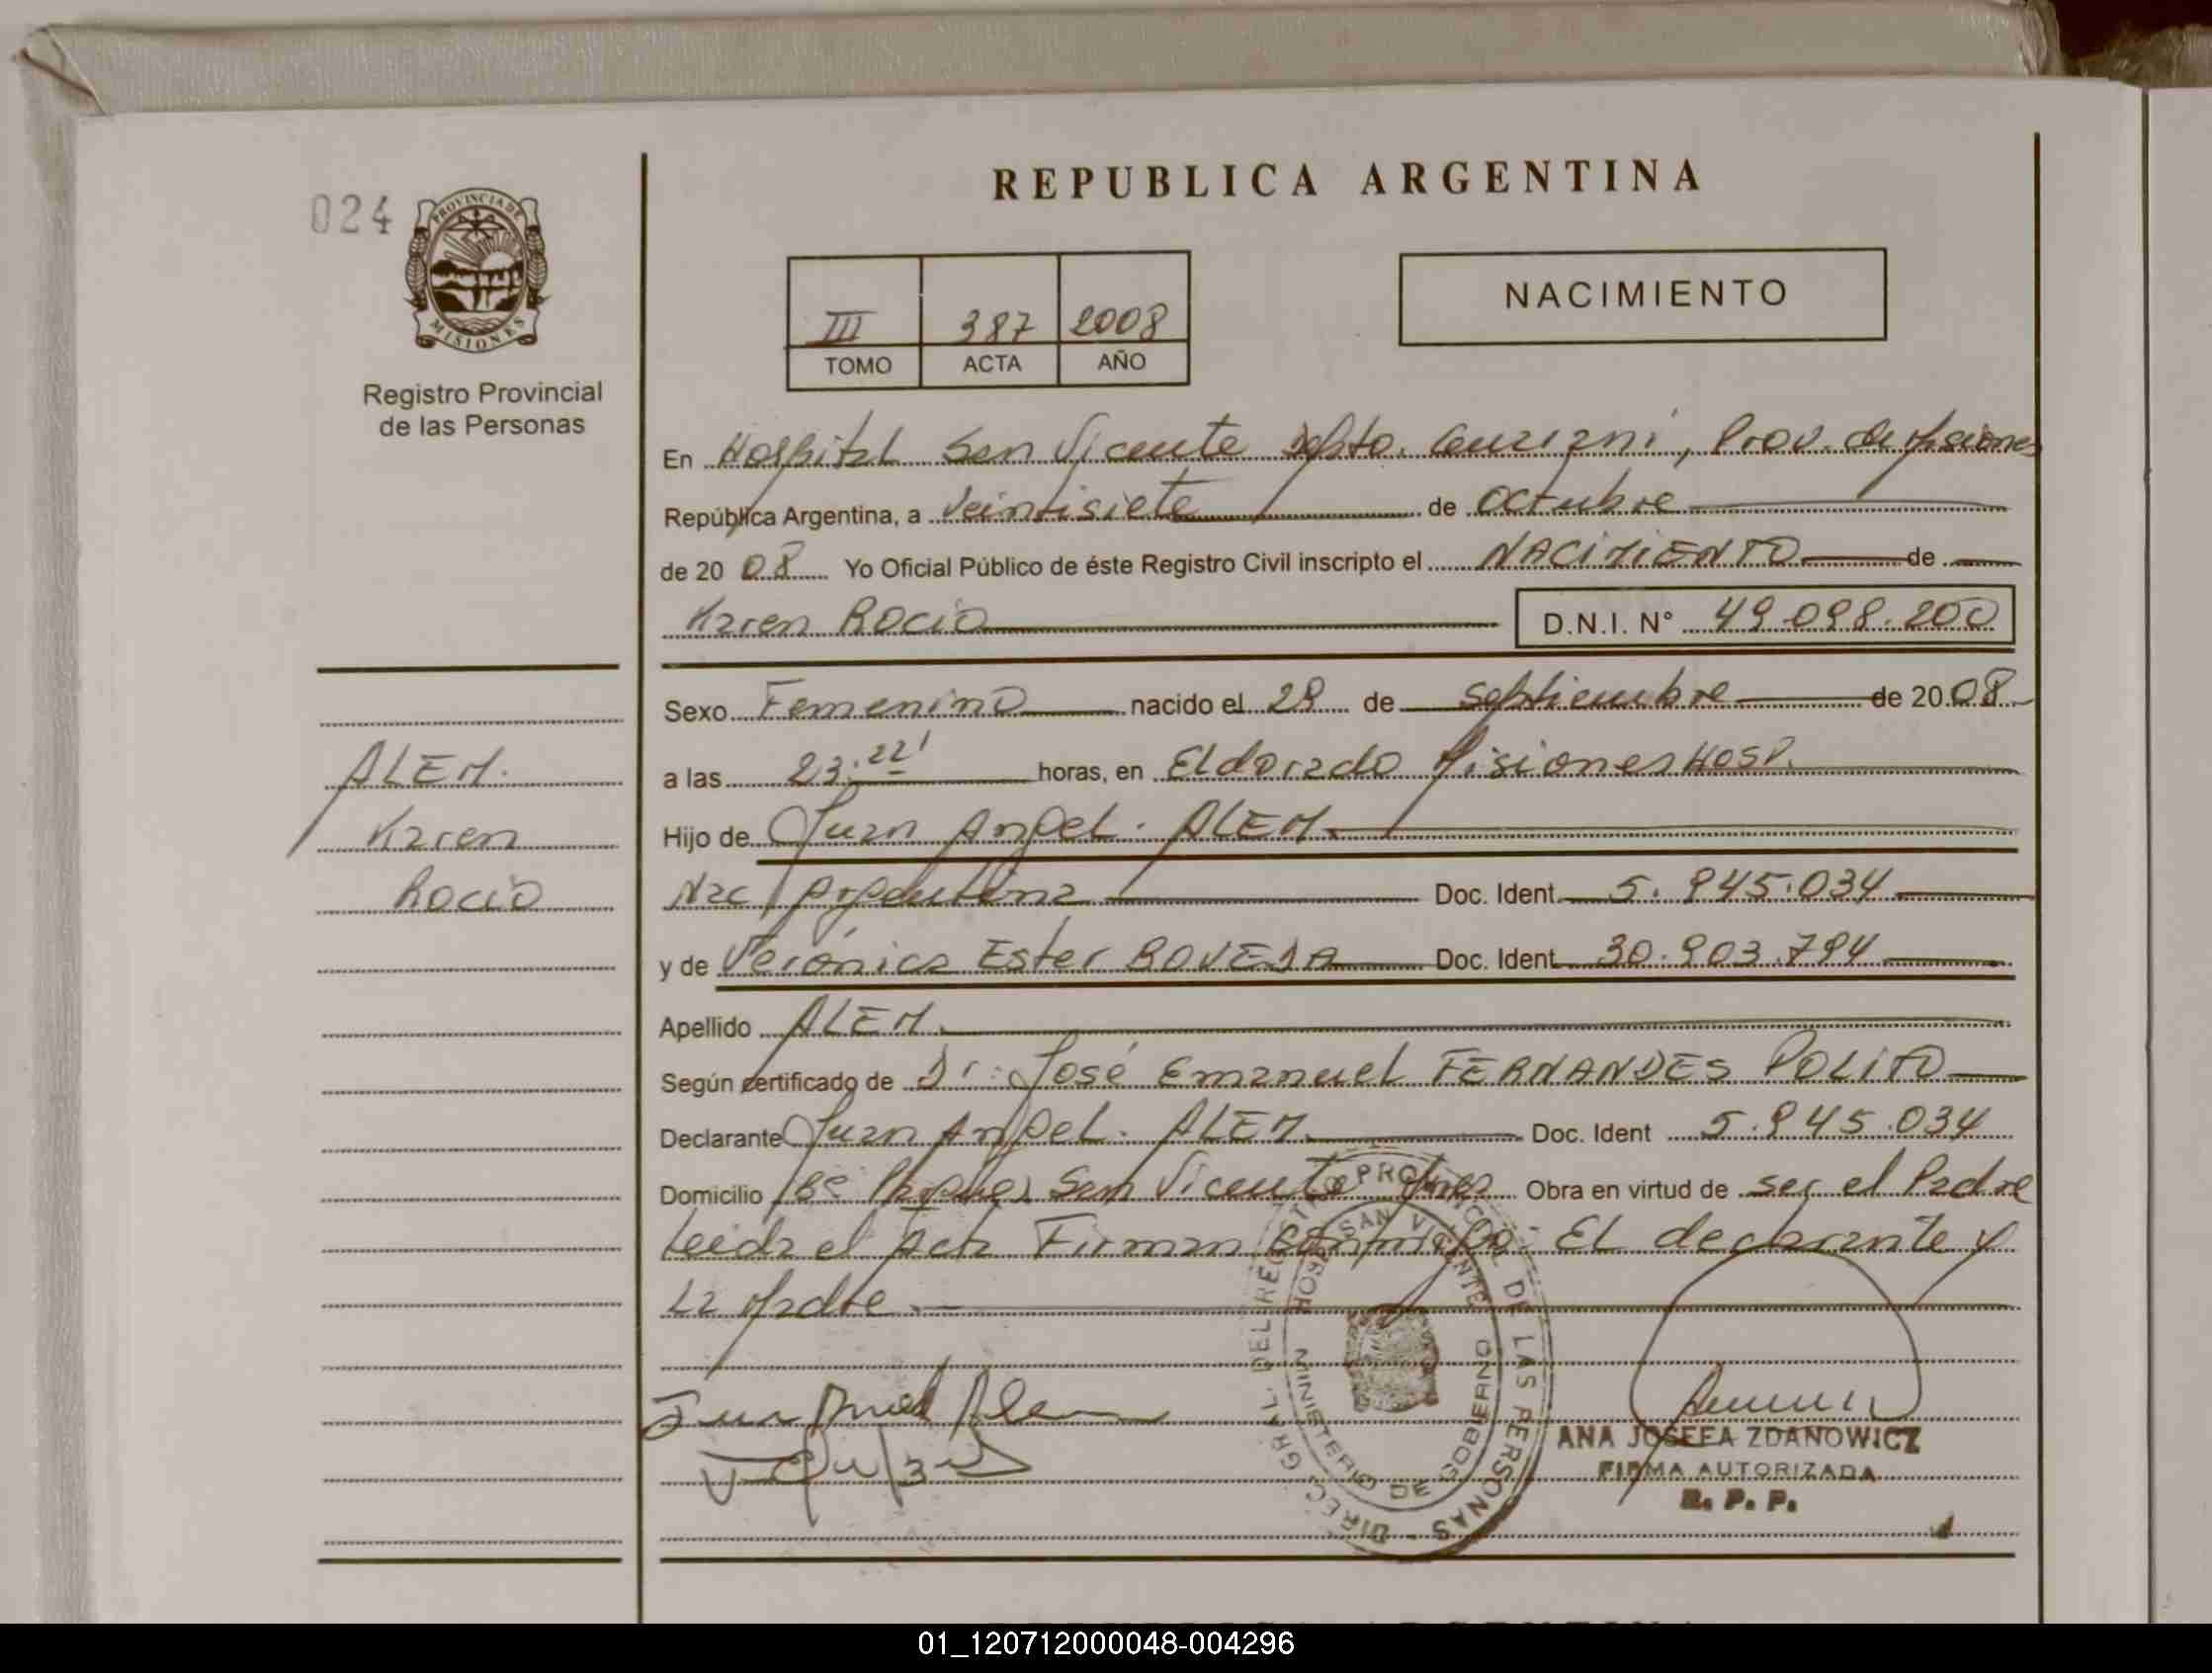 024
PROVINCIA DE
MISIONES
Registro Provincial
de las Personas
REPUBLICA ARGENTINA
III 387 2008
TOMO ACTA AÑO
NACIMIENTO
En Hospital San Vicente Dpto. Guaraní, Prov. de Misiones
República Argentina, a Veintisiete de Octubre
de 20 08 Yo Oficial Público de éste Registro Civil inscripto el NACIMIENTO de
Karen Rocio D.N.I. N° 49.098.200
Sexo Femenino nacido el 28 de Septiembre de 20 08
a las 23:22' horas, en Eldorado Misiones HOSP.
Hijo de Juan Angel. ALEM
Nac Argentina Doc. Ident. 5.845.034
y de Verónica Ester Doc. Ident 30.903.794
Apellido ALEM.
Según certificado de Dr. José Emanuel FERNANDES POLITO
Declarante Juan Angel. ALEM Doc. Ident 5.845.034
Domicilio San Vicente Obra en virtud de ser el Padre
Leida el Acta Firman conmigo: EL declarante y
La Madre.
ALEM.
Karen
Rocio
Juan Angel Alem
DIREC. GRAL. DEL REGISTRO PROVINCIAL DE LAS PERSONAS
SAN VICENTE
MINISTERIO DE GOBIERNO
ANA JOSEFA ZDANOWICZ
FIRMA AUTORIZADA
R. P. P.
01_120712000048-004296